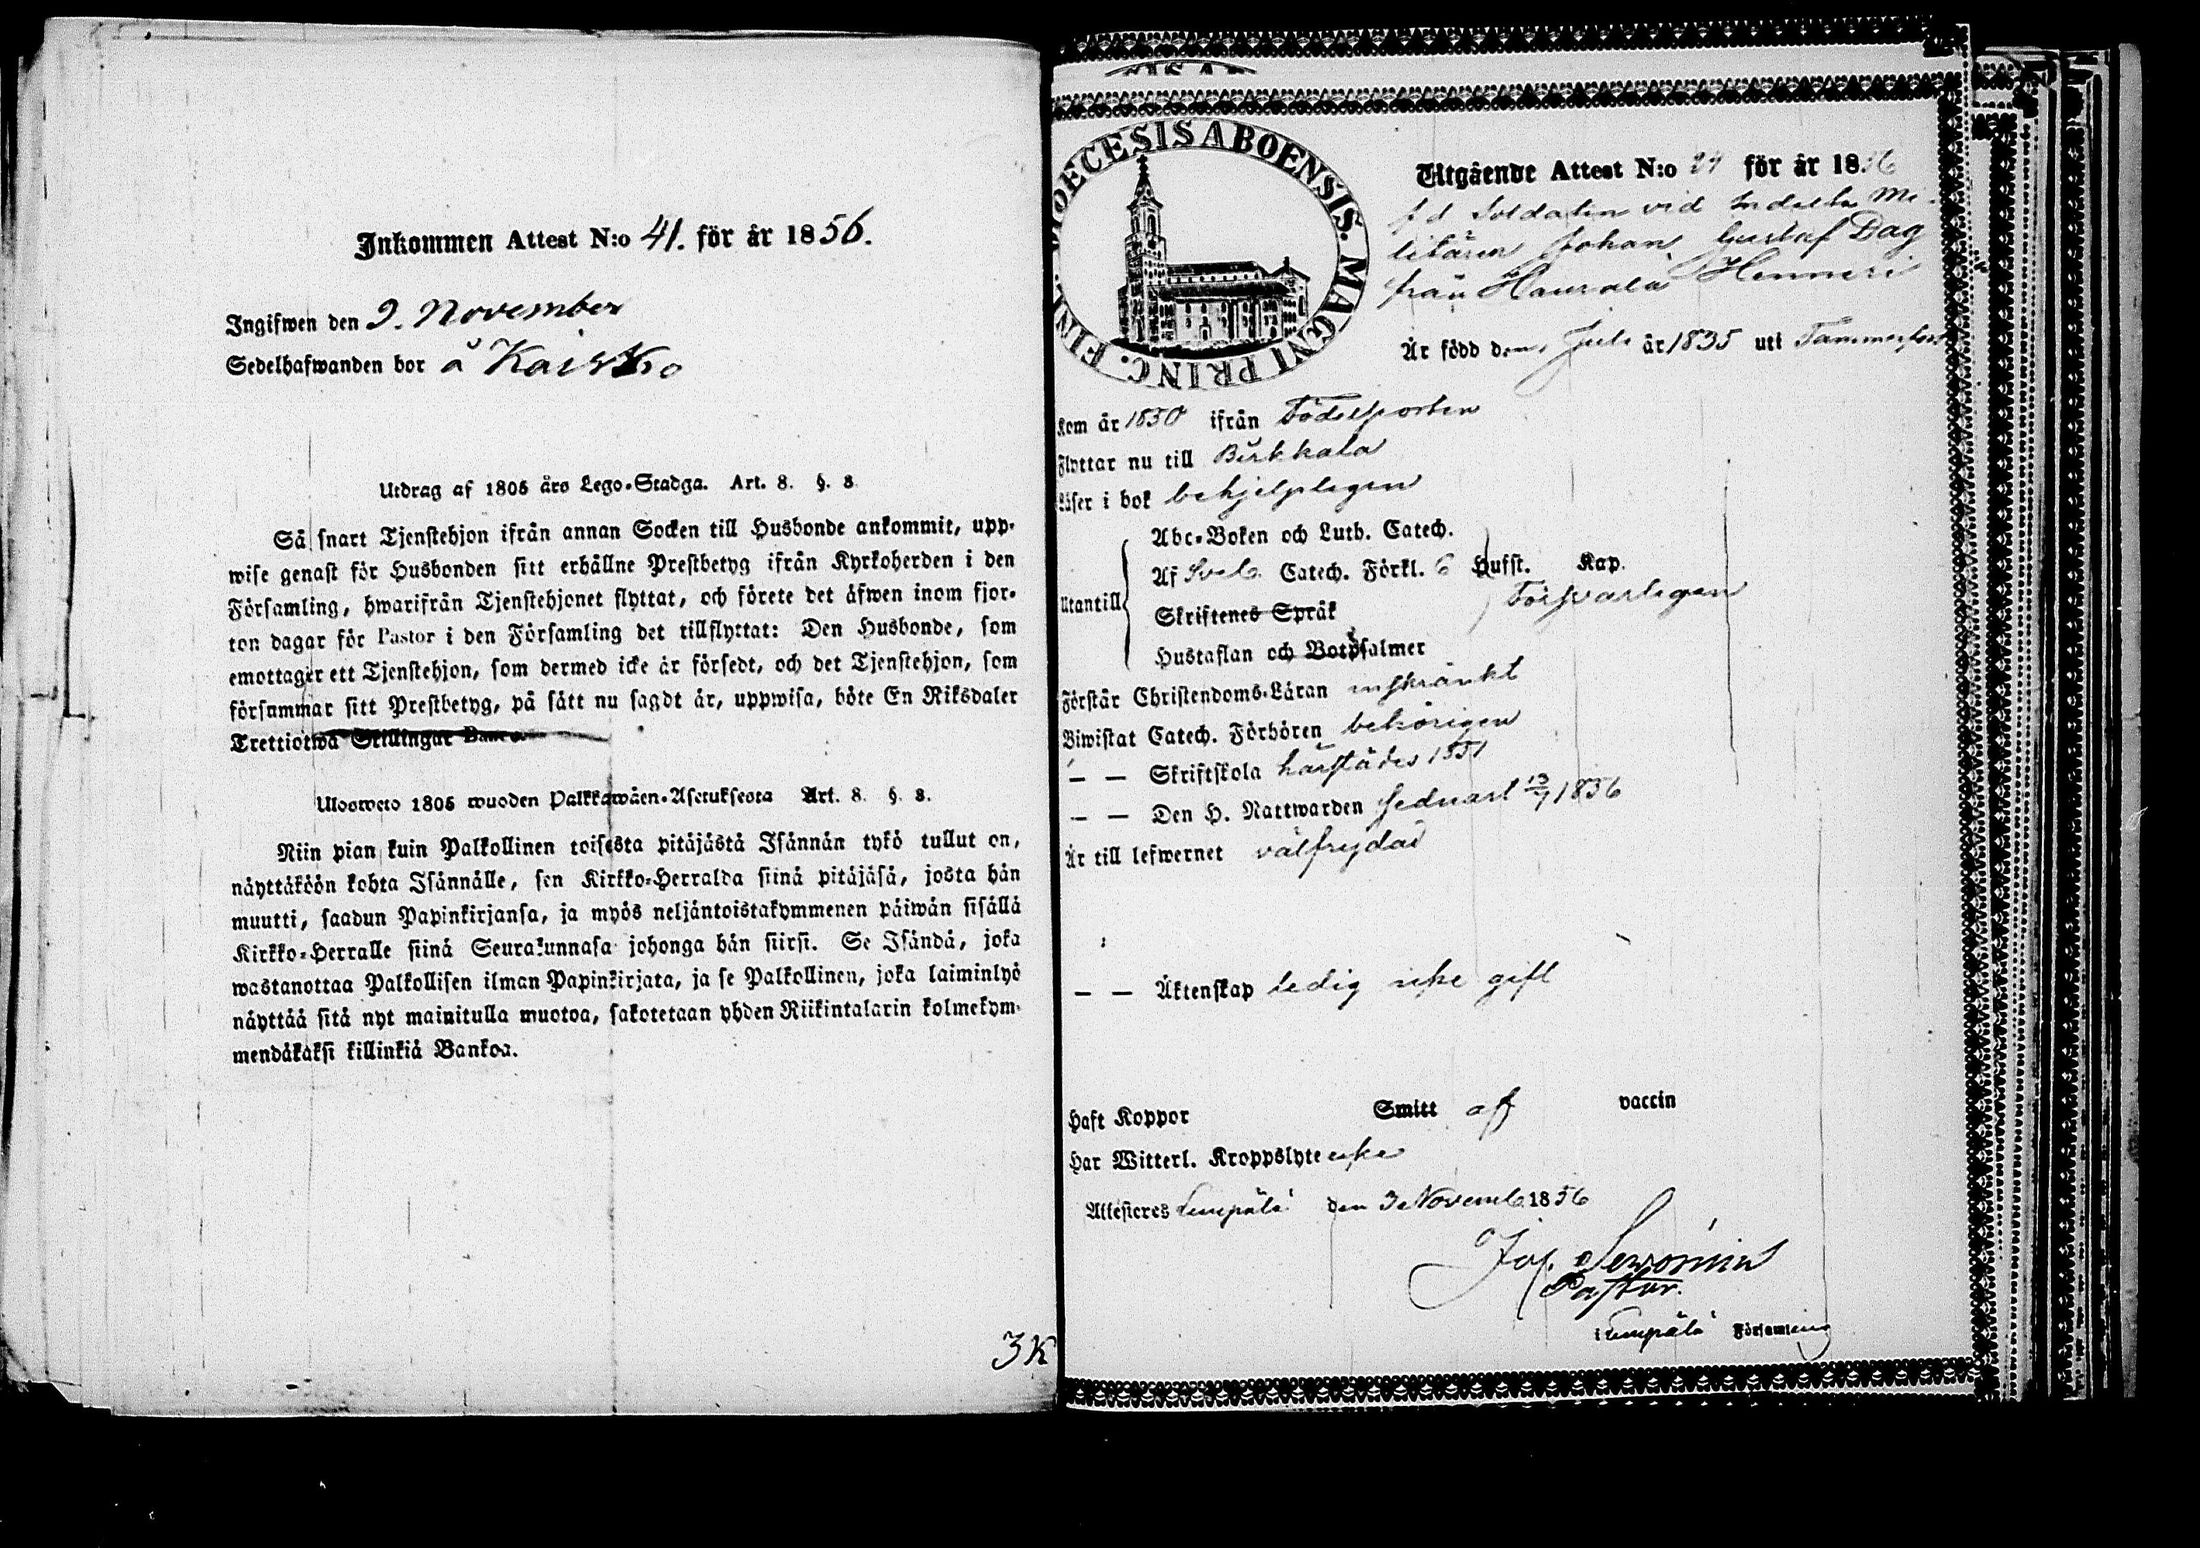 Inkommen Attest N:o 41. för år 1856.
Ingifwen den 9. November
Sedelhafwanden bor å Kaisko
Utdrag af 1805 års Lego-Stadga. Art. 8. §. 8
Så snart Tjenstehjon ifrån annan Socken till Husbonde ankommit, upp-
wise genast för Husbonden sitt erhållne Prestbetyg ifrån Kyrkoherden i den
Församling, hwarifrån Tjenstehjonet flyttat, och förete det äfwen inom fjor-
ton dagar för Pastor i den Församling det tillflyttat: Den Husbonde, som
emottager ett Tjenstehjon, som dermed icke är försedt, och det Tjenstehjon, som
försummar sitt Prestbetyg, på sätt nu sagdt är, uppwisa, böte En Riksdaler
Trettiotwå Skillingar Banco.
Ulosweto 1805 wuoden Palkkawäen-Asetuksesta Art. 8. §. 8.
Niin pian kuin Palkollinen toisesta pitäjästä Isännän tykö tullut on,
näyttäköön kohta Isännälle, sen Kirkko-Herralda siinä pitäjäsä, josta hän
muutti, saadun Papinkirjansa, ja myös neljäntoistakymmenen päiwän sisällä
Kirkko-Herralle siinä Seurakunnasa johonga hän siirsi. Se Isändä, joka
wastanottaa Palkollisen ilman Papinkirjata, ja se Palkollinen, joka laiminlyö
näyttää sitä nyt mainitulla muotoa, sakotetaan yhden Riikintalarin kolmekym-
mendäkaksi killinkiä Bankoa.
3K
DIOECESIS ABOENSIS. MAGNI PRINC. FINL.
Utgående Attest N:o 24 för år 1856
f d Soldaten vid Indelta Mi-
litären Johan Gustaf Dag
från Haurala Henneri
Är född den 1 Juli år 1835 uti Tammerfors
Kom år 1850 ifrån Födelseorten
Flyttar nu till Birkkala
Läser i bok behjelpligen
Abc-Boken och Luth. Catech.
Af Sveb. Catech. Förkl. 6 Hufst. Kap.
Utantill Skriftenes Språk Försvarligen
Hustaflan och Botpsalmer
Förstår Christendoms-Läran inskränkt
Biwistat Catech. Förhören behörigen
— — Skriftskola härstädes 1851
— — Den H. Nattwarden sednast 13/7 1856
Är till lefwernet välfrejdad
— — Äktenskap ledig icke gift
Haft Koppor Smitt af vaccin
Har Witterl. Kroppslyte icke
Attesteres Lempälä den 3 Novemb 1856
Pastor.
i Lempälä Församling